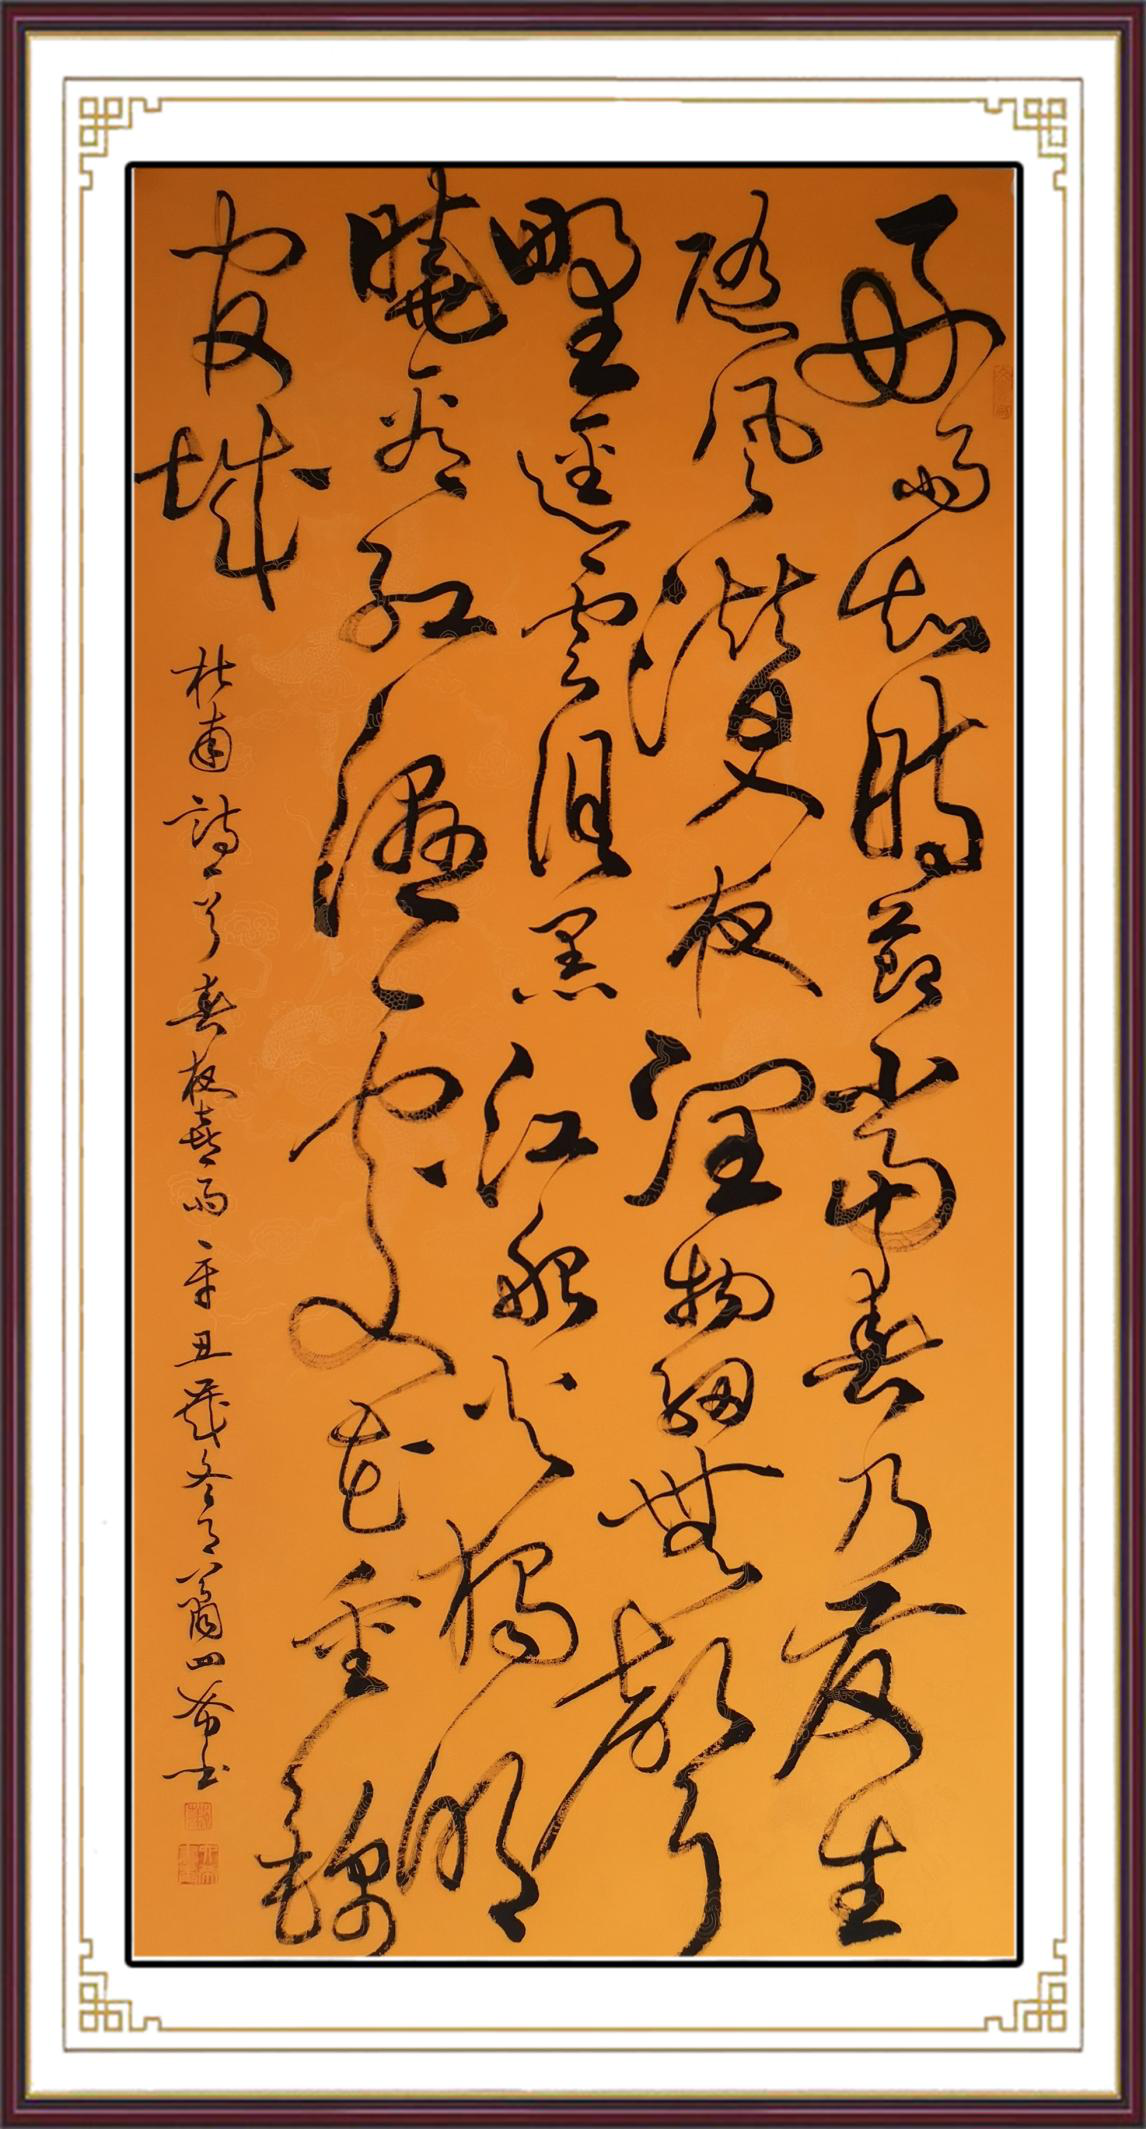 好雨知時節當春乃發生
隨風潛入夜潤物細無聲
野徑雲俱黑江船火獨明
曉看紅濕處花重錦
官城
杜甫詩一首春夜喜雨辛丑歲冬月蕭書